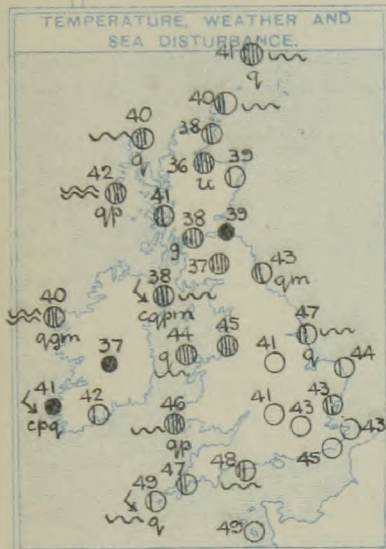 TEMPERATURE, WEATHER AND
SEA DISTURBANCE.
41
q
40
40
38
q
36
39
u
42
qp
41
38
39
g
37
43
qm
38
cqpm
40
qgm
47
q
44
q
45
41
44
37
41
cpq
42
46
qp
41
43
43
43
45
49
q
47
48
49